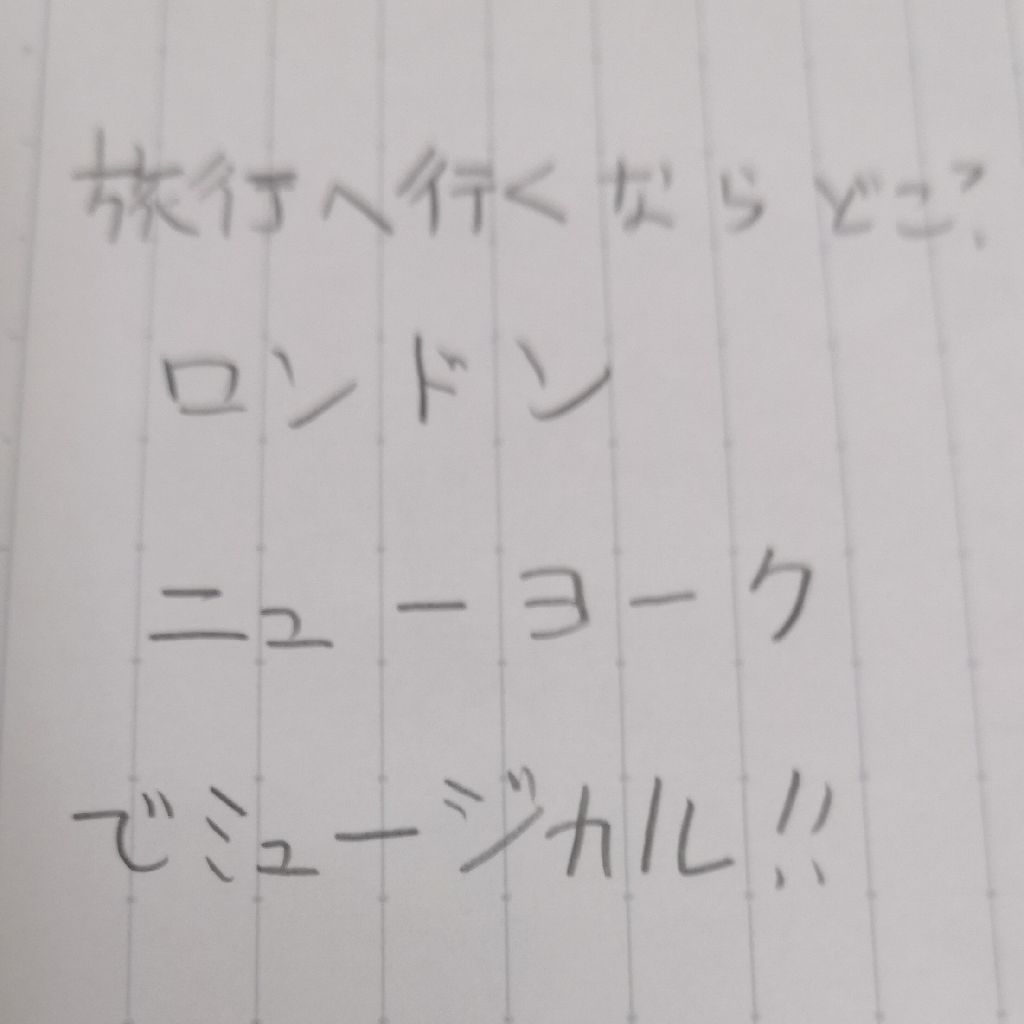 旅行へ行くならどこ?
ロンドン
ニューヨーク
でミュージカル!!